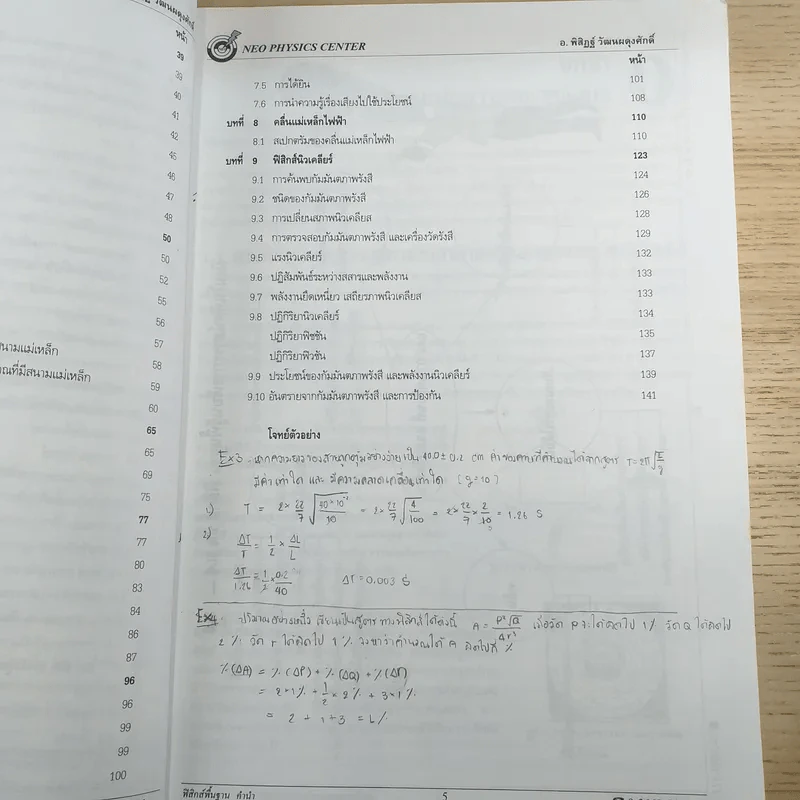 หน้า
39
39
40
41
42
45
46
47
48
50
50
52
55
56
57
58
59
60
65
65
69
75
77
77
80
83
84
86
87
96
96
99
99
100
สนามแม่เหล็ก
ณที่มีสนามแม่เหล็ก
NEO PHYSICS CENTER อ. พิสิฏฐ์ วัฒนผดุงศักดิ์
หน้า
7.5 การได้ยิน 101
7.6 การนำความรู้เรื่องเสียงไปใช้ประโยชน์ 108
บทที่ 8 คลื่นแม่เหล็กไฟฟ้า 110
8.1 สเปกตรัมของคลื่นแม่เหล็กไฟฟ้า 110
บทที่ 9 ฟิสิกส์นิวเคลียร์ 123
9.1 การค้นพบกัมมันตภาพรังสี 124
9.2 ชนิดของกัมมันตภาพรังสี 126
9.3 การเปลี่ยนสภาพนิวเคลียส 128
9.4 การตรวจสอบกัมมันตภาพรังสี และเครื่องวัดรังสี 129
9.5 แรงนิวเคลียร์ 132
9.6 ปฏิสัมพันธ์ระหว่างสสารและพลังงาน 133
9.7 พลังงานยึดเหนี่ยว เสถียรภาพนิวเคลียส 133
9.8 ปฏิกิริยานิวเคลียร์ 134
ปฏิกิริยาฟิชชัน 135
ปฏิกิริยาฟิวชัน 137
9.9 ประโยชน์ของกัมมันตภาพรังสี และพลังงานนิวเคลียร์ 139
9.10 อันตรายจากกัมมันตภาพรังสี และการป้องกัน 141
โจทย์ตัวอย่าง
Ex3 เป็น 40.0 ± 0.2 cm T = 2π√L/g
มีค่าเท่าใด และ มีความคลาดเคลื่อนเท่าใด (g=10)
1) T = 2×22/7 √40×10⁻²/10 = 2×22/7 √4/100 = 2×22/7×2/10 = 1.26 S
2) ΔT/T = 1/2 × ΔL/L
ΔT/1.26 = 1/2 × 0.2/40 ΔT = 0.003 S
Ex4 ปริมาณอย่างหนึ่ง เขียนเป็นสูตรทางฟิสิกส์ได้ดังนี้ A = P²√Q/4r³ เมื่อวัด P จะได้ผิดไป 1% วัด Q ได้ผิดไป
2% วัด r ได้ผิดไป 1% A ผิดไปกี่ %
%(ΔA) = %(ΔP) + %(ΔQ) + %(Δr)
= 2×1% + 1/2×2% + 3×1%
= 2 + 1 + 3 = 6%
ฟิสิกส์พื้นฐาน คำนำ 5